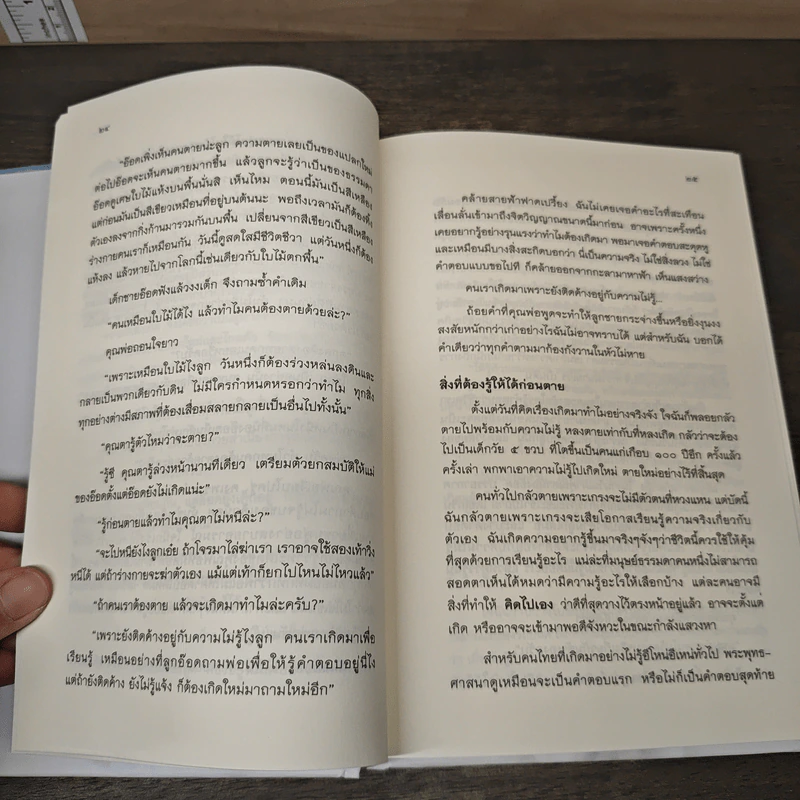 ๒๔
"อ๊อดเพิ่งเห็นคนตายน่ะลูก ความตายเลยเป็นของแปลกใหม่
ต่อไปอ๊อดจะเห็นคนตายมากขึ้น แล้วลูกจะรู้ว่าเป็นของธรรมดา
อ๊อดดูเศษใบไม้แห้งบนพื้นนั่นสิ เห็นไหม ตอนนี้มันเป็นสีเหลือง
แต่ก่อนมันเป็นสีเขียวเหมือนที่อยู่บนต้นนะ พอถึงเวลามันก็ต้องทิ้ง
ตัวเองลงจากกิ่งก้านมารวมกันบนพื้น เปลี่ยนจากสีเขียวเป็นสีเหลือง
ร่างกายคนเราก็เหมือนกัน วันนี้ดูสดใสมีชีวิตชีวา แต่วันหนึ่งก็ต้อง
แห้งลง แล้วหายไปจากโลกนี้เช่นเดียวกับใบไม้ตกพื้น"
เด็กชายอ๊อดฟังแล้วงงเต็ก จึงถามซ้ำคำเดิม
"คนเหมือนใบไม้ได้ไง แล้วทำไมคนต้องตายด้วยล่ะ?"
คุณพ่อถอนใจยาว
"เพราะเหมือนใบไม้ไงลูก วันหนึ่งก็ต้องร่วงหล่นลงดินและ
กลายเป็นพวกเดียวกับดิน ไม่มีใครกำหนดหรอกว่าทำไม ทุกสิ่ง
ทุกอย่างต่างมีสภาพที่ต้องเสื่อมสลายกลายเป็นอื่นไปทั้งนั้น"
"คุณตารู้ตัวไหมว่าจะตาย?"
"รู้ซี คุณตารู้ล่วงหน้านานทีเดียว เตรียมตัวยกสมบัติให้แม่
ของอ๊อดตั้งแต่อ๊อดยังไม่เกิดแน่ะ"
"รู้ก่อนตายแล้วทำไมคุณตาไม่หนีล่ะ?"
"จะไปหนียังไงลูกเอ๋ย ถ้าโจรมาไล่ฆ่าเรา เราอาจใช้สองเท้าวิ่ง
หนีได้ แต่ถ้าร่างกายจะฆ่าตัวเอง แม้แต่เท้าก็ยกไปไหนไม่ไหวแล้ว"
"ถ้าคนเราต้องตาย แล้วจะเกิดมาทำไมล่ะครับ?"
"เพราะยังติดค้างอยู่กับความไม่รู้ไงลูก คนเราเกิดมาเพื่อ
เรียนรู้ เหมือนอย่างที่ลูกอ๊อดถามพ่อเพื่อให้รู้คำตอบอยู่นี่ไง
แต่ถ้ายังติดค้าง ยังไม่รู้แจ้ง ก็ต้องเกิดใหม่มาถามใหม่อีก"
๒๕
คล้ายสายฟ้าฟาดเปรี้ยง ฉันไม่เคยเจอคำอะไรที่สะเทือน
เลื่อนลั่นเข้ามาถึงจิตวิญญาณขนาดนี้มาก่อน อาจเพราะครั้งหนึ่ง
เคยอยากรู้อย่างรุนแรงว่าทำไมต้องเกิดมา พอมาเจอคำตอบสะดุดหู
และเหมือนมีบางสิ่งสะกิดบอกว่า นี่เป็นความจริง ไม่ใช่สิ่งลวง ไม่ใช่
คำตอบแบบขอไปที ก็คล้ายออกจากกะลามาหาฟ้า เห็นแสงสว่าง
คนเราเกิดมาเพราะยังติดค้างอยู่กับความไม่รู้...
ถ้อยคำที่คุณพ่อพูดจะทำให้ลูกชายกระจ่างขึ้นหรือยิ่งงุนงง
สงสัยหนักกว่าเก่าอย่างไรฉันไม่อาจทราบได้ แต่สำหรับฉัน บอกได้
คำเดียวว่าทุกคำตามมาก้องกังวานในหัวไม่หาย
สิ่งที่ต้องรู้ให้ได้ก่อนตาย
ตั้งแต่วันที่คิดเรื่องเกิดมาทำไมอย่างจริงจัง ใจฉันก็พลอยกลัว
ตายไปพร้อมกับความไม่รู้ หลงตายเท่ากับที่หลงเกิด กลัวว่าจะต้อง
ไปเป็นเด็กวัย ๕ ขวบ ที่โตขึ้นเป็นคนแก่เกือบ ๑๐๐ ปีอีก ครั้งแล้ว
ครั้งเล่า พกพาเอาความไม่รู้ไปเกิดใหม่ ตายใหม่อย่างไร้ที่สิ้นสุด
คนทั่วไปกลัวตายเพราะเกรงจะไม่มีตัวตนที่หวงแหน แต่บัดนี้
ฉันกลัวตายเพราะเกรงจะเสียโอกาสเรียนรู้ความจริงเกี่ยวกับ
ตัวเอง ฉันเกิดความอยากรู้ขึ้นมาจริงๆจังๆว่าชีวิตนี้ควรใช้ให้คุ้ม
ที่สุดด้วยการเรียนรู้อะไร แน่ล่ะที่มนุษย์ธรรมดาคนหนึ่งไม่สามารถ
สอดตาเห็นได้หมดว่ามีความรู้อะไรให้เลือกบ้าง แต่ละคนอาจมี
สิ่งที่ทำให้ คิดไปเอง ว่าดีที่สุดวางไว้ตรงหน้าอยู่แล้ว อาจจะตั้งแต่
เกิด หรืออาจจะเข้ามาพอดีจังหวะในขณะกำลังแสวงหา
สำหรับคนไทยที่เกิดมาอย่างไม่รู้อีโหน่อีเหน่ทั่วไป พระพุทธ-
ศาสนาดูเหมือนจะเป็นคำตอบแรก หรือไม่ก็เป็นคำตอบสุดท้าย